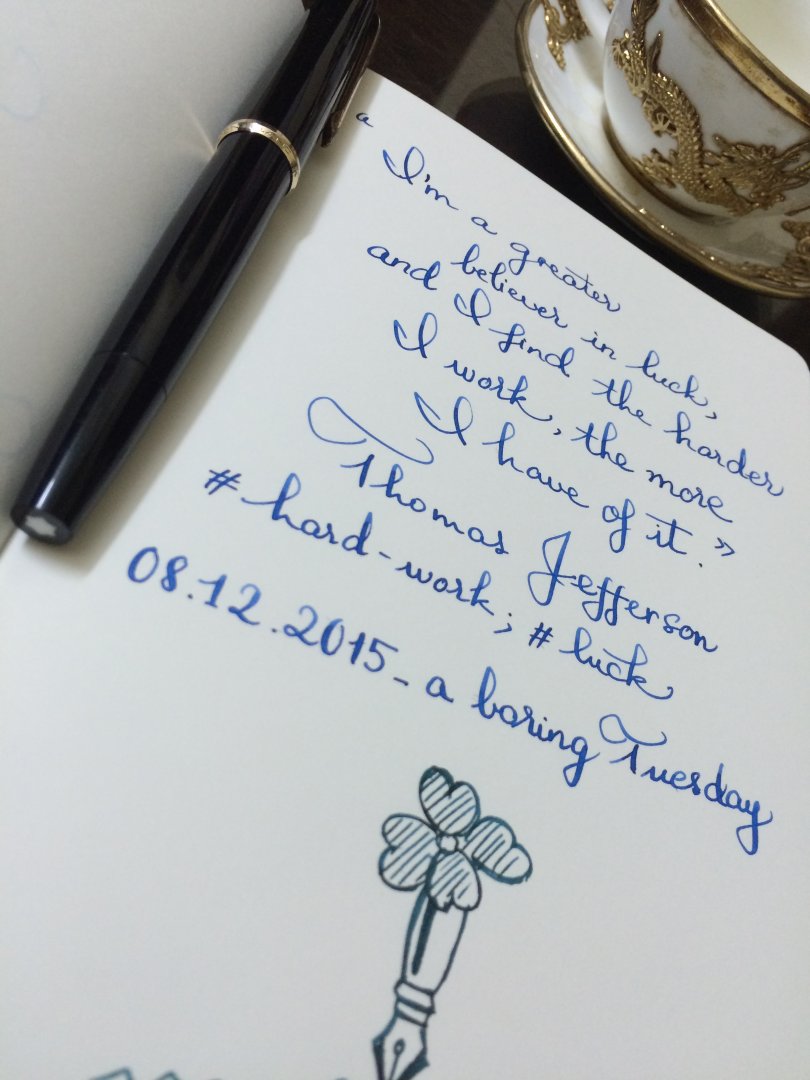 "I'm a greater
believer in luck,
and I find the harder
I work, the more
I have of it."
Thomas Jefferson
#hard-work; #luck
08.12.2015 - a boring Tuesday